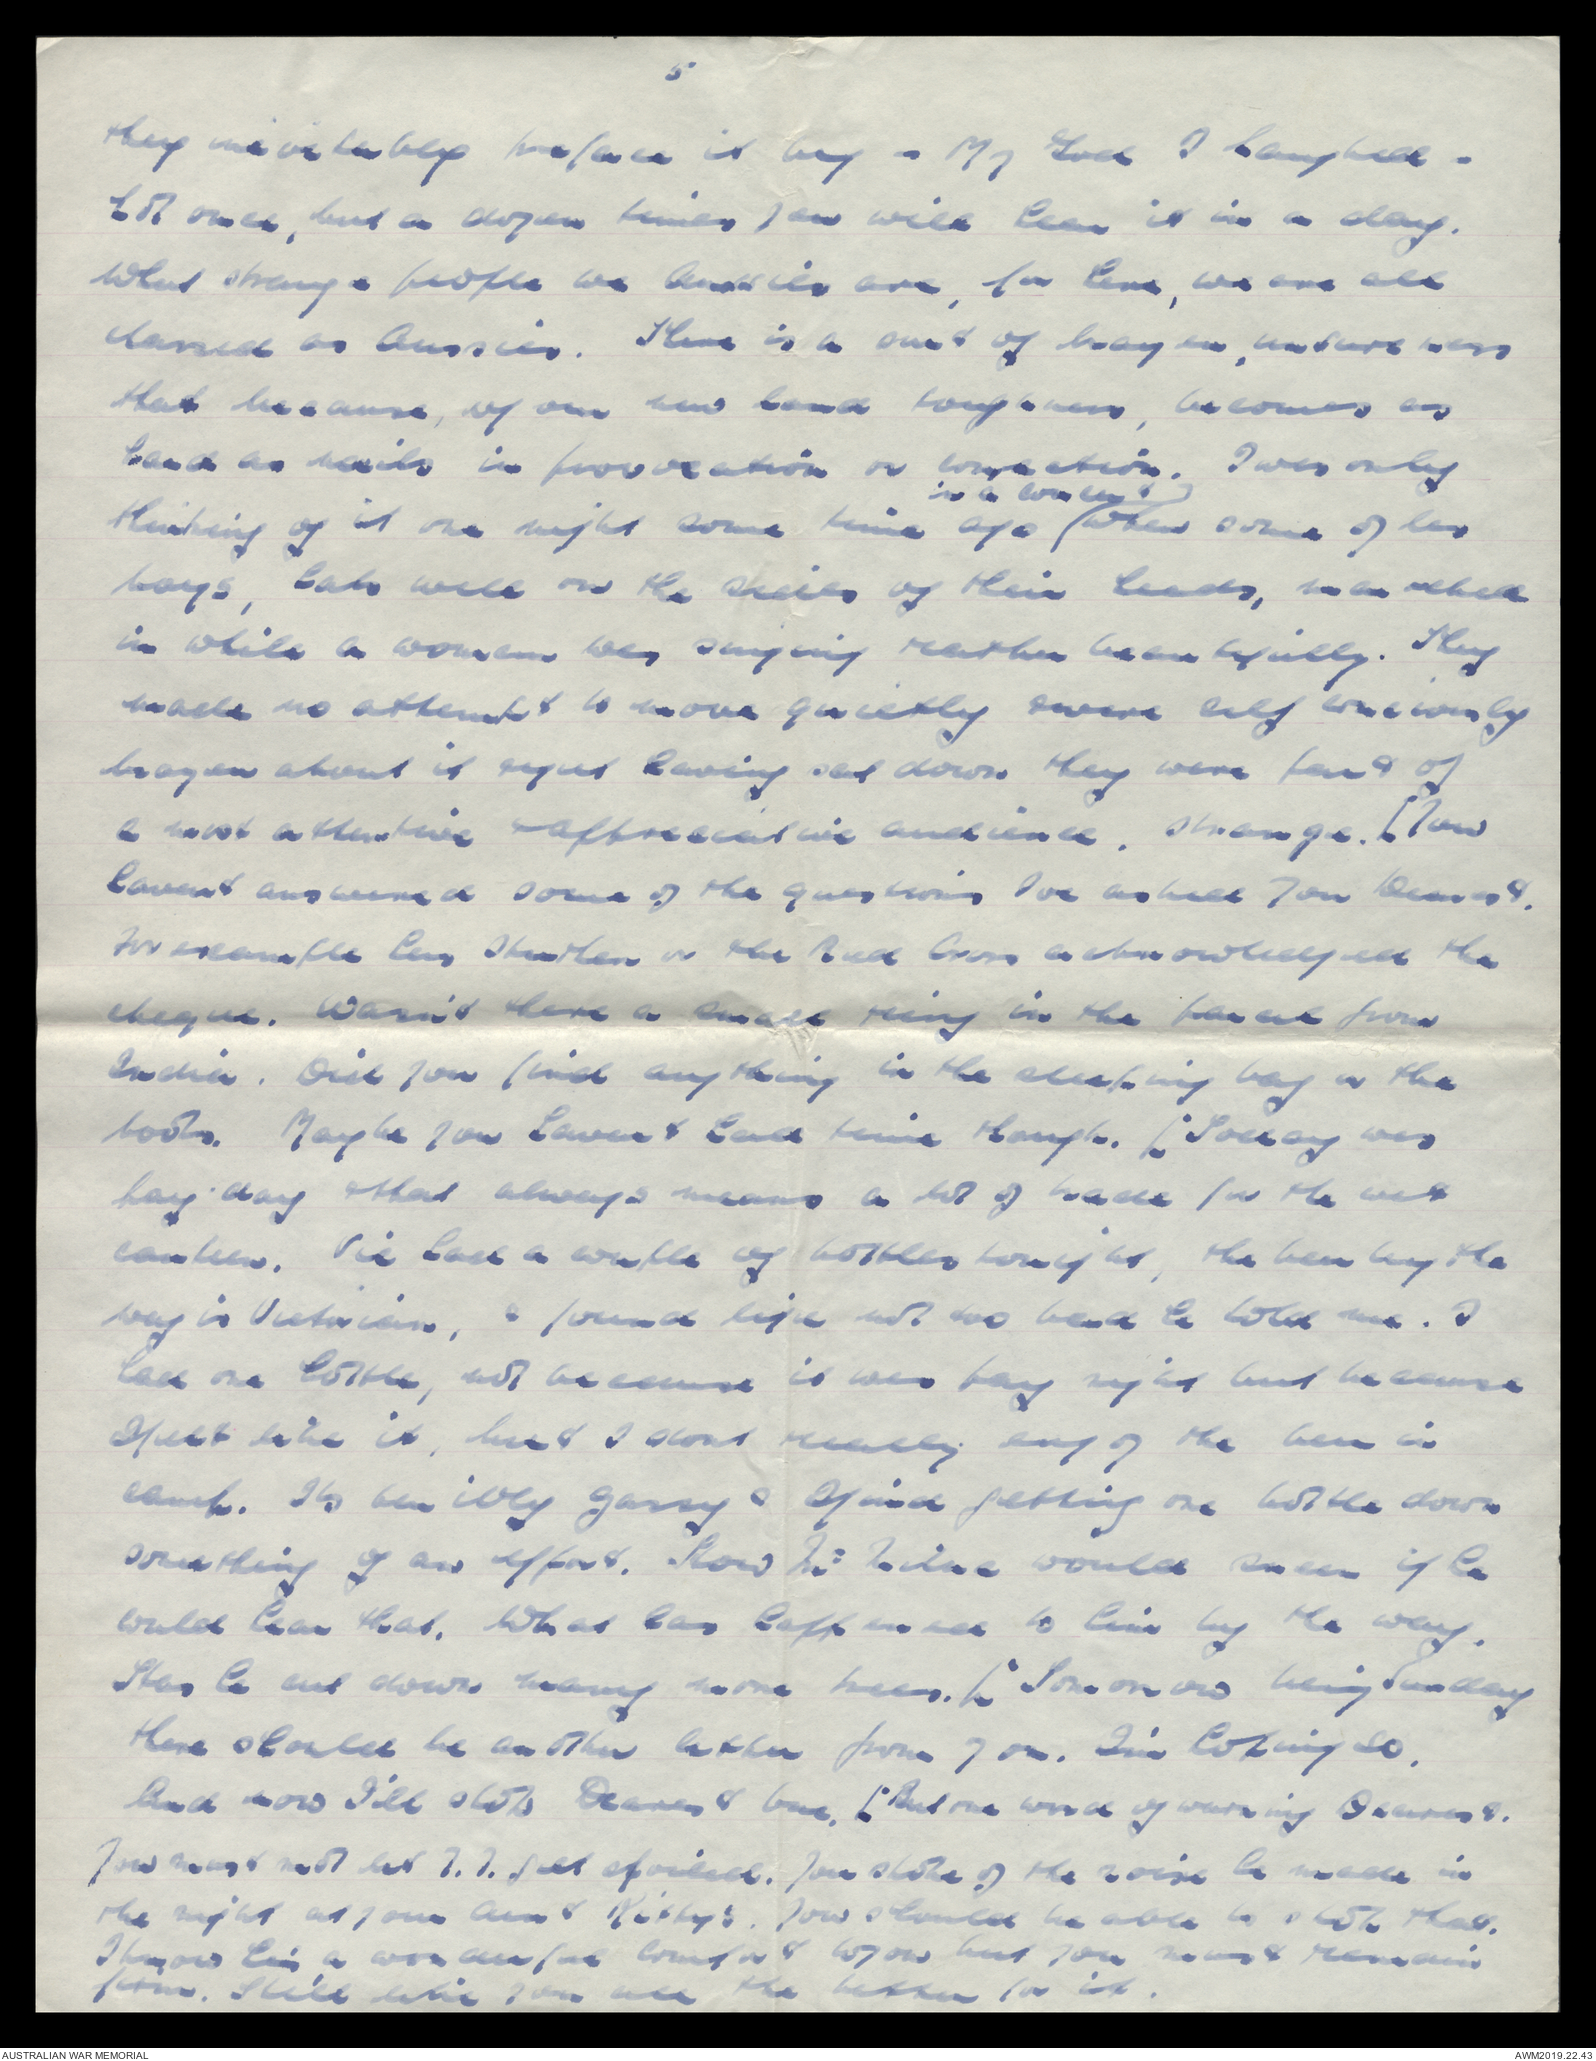 5
they inevitably preface it by - My God I laughed -
Not once, but a dozen times you will hear it in a day.
What strange people we Aussies are, for here, we are all
classed as Aussies. There is a sort of brazen, unsureness
that because, of our new land toughness, becomes as
hard as nails in provocation or correction. I was only
in a concert
thinking of it one night some time ago (when some of her
boys, hats well on the sides of their heads, marched
in while a woman was singing rather beautifully. They
made no attempt to move quietly & were self conciously
brazen about it & yet having sat down they were part of
a most attentive & appreciative audience. Strange. [You
havent answered some of the questions Ive asked you Dearest.
For example has or the Red Cross acknowledged the
cheque. Wasn't there a small ring in the parcel from
India. Did you find anything in the sleeping bag or the
boots. Maybe you havent had time though. [Today was
pay-day & that always means a lot of trade for the wet
canteen. Vic had a couple of bottles tonight, the beer by the
way is Victorian, & found life not too bad he told me. I
had one bottle, not because it was pay night but because
I felt like it, but I dont really enjoy the beer in
camp. Its terribly gassy & I find getting one bottle down
something of an effort. How Mr would sneer if he
could hear that. What has happened to him by the way.
Has he cut down many more trees. [Tomorrow being Sunday
there should be another letter from you. I'm hoping so.
And now I'll stop Dearest one. [But one word of warning Dearest.
You must not let T.T. get spoiled. You spoke of the noise he made in
the night at your Aunt Kitty's. You should be able to stop that.
I know he's a wonderful comfort to you but you must remain
firm. He'll like you all the better for it.
AUSTRALIAN WAR MEMORIAL
AWM2019.22.43